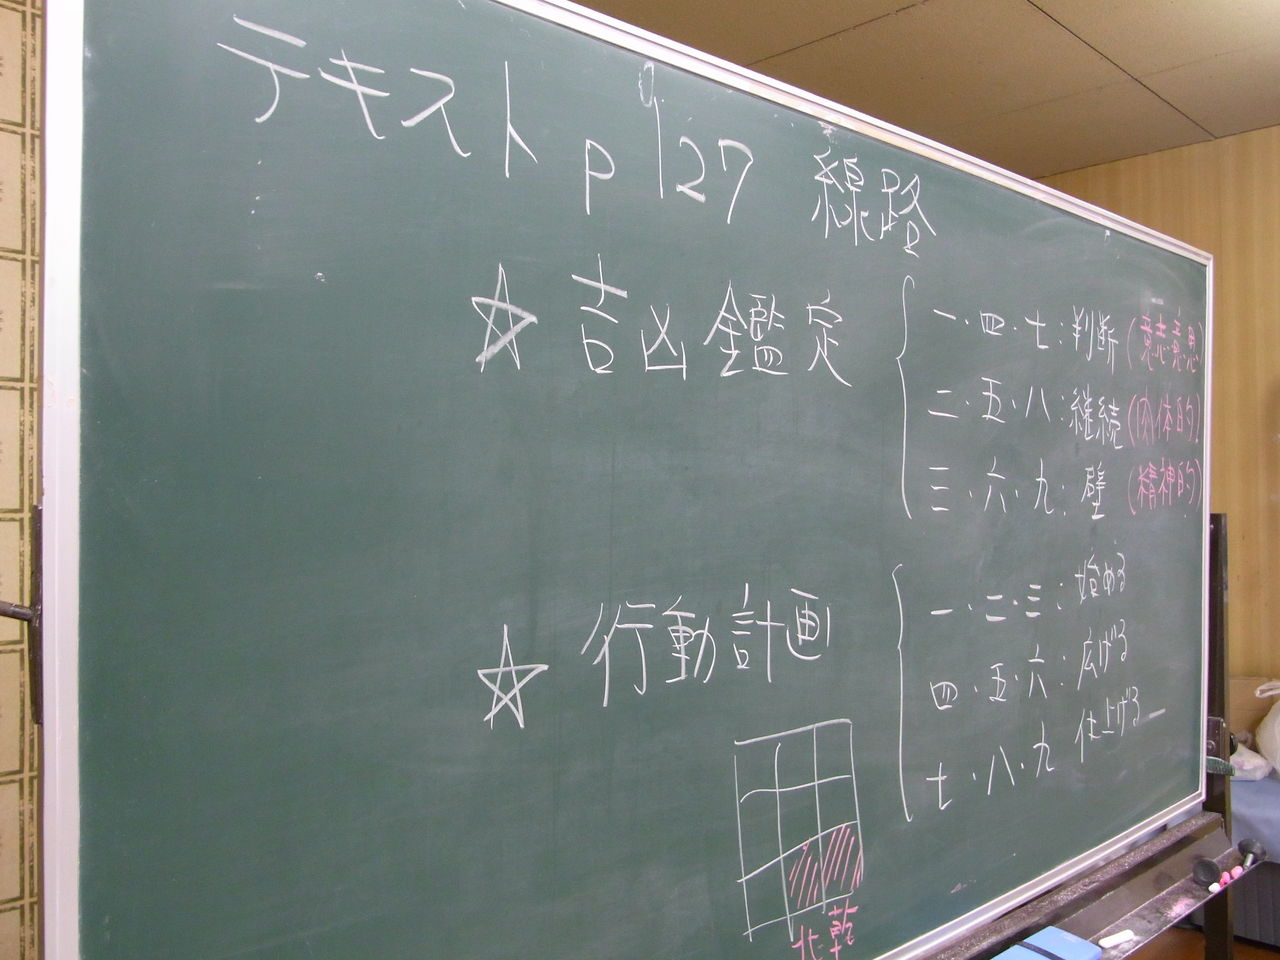 テキスト p127 線路
☆ 吉凶鑑定
一・四・七:判断(意志意思)
二・五・八:継続(肉体的)
三・六・九:壁(精神的)
☆ 行動計画
一・二・三:始める
四・五・六:広げる
七・八・九 仕上げる
北 乾